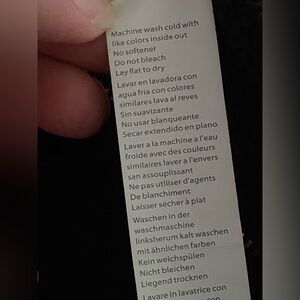 Machine wash cold with
like colors inside out
No softener
Do not bleach
Lay flat to dry
Lavar en lavadora con
agua fria con colores
similares lava al reves
Sin suavizante
No usar blanqueante
Secar extendido en plano
Laver a la machine a l'eau
froide avec des couleurs
similaires laver a l'envers
san assouplissant
Ne pas utiliser d'agents
De blanchiment
Laisser sécher à plat
Waschen in der
waschmaschine
linksherum kalt waschen
mit ähnlichen farben
Kein weichspülen
Nicht bleichen
Liegend trocknen
Lavare in lavatrice con